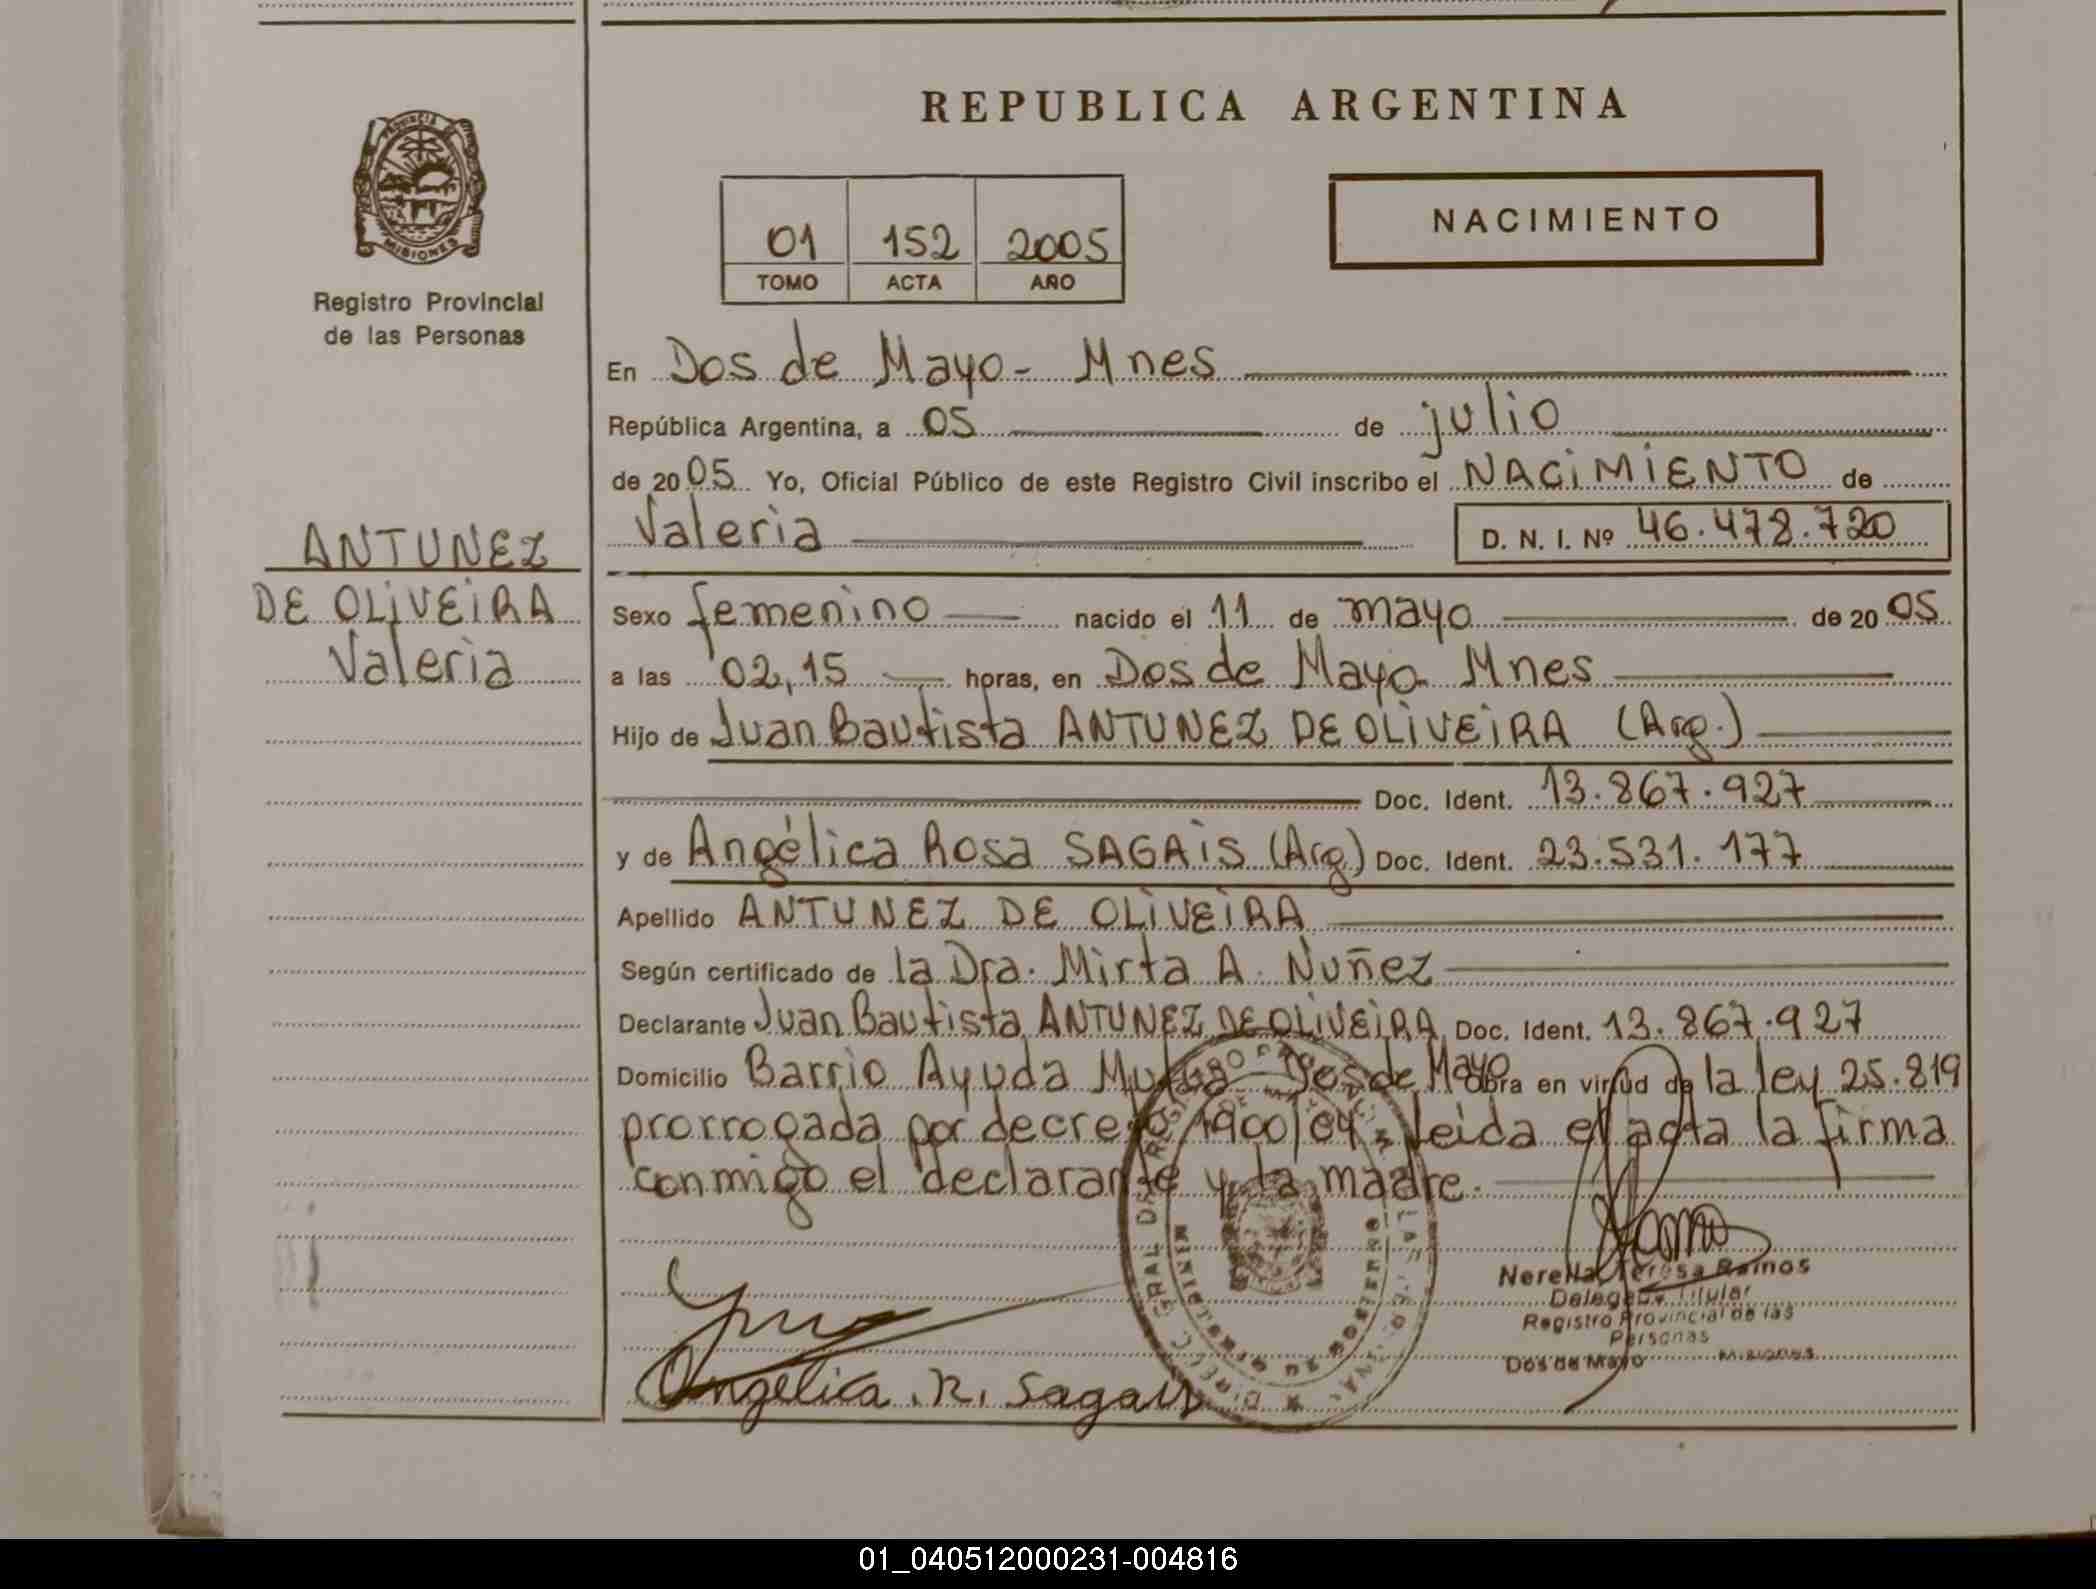 REPUBLICA ARGENTINA
PROVINCIA DE
MISIONES
Registro Provincial
de las Personas
01 152 2005
TOMO ACTA AÑO
NACIMIENTO
En Dos de Mayo - Mnes
República Argentina, a 05 de julio
de 2005 Yo, Oficial Público de este Registro Civil inscribo el NACIMIENTO de
Valeria D. N. I. Nº 46.478.720
ANTUNEZ
DE OLIVEIRA
Valeria
Sexo femenino nacido el 11 de mayo de 2005
a las 02,15 horas, en Dos de Mayo Mnes
Hijo de Juan Bautista ANTUNEZ DE OLIVEIRA (Arg.)
Doc. Ident. 13.867.927
y de Angélica Rosa SAGAIS (Arg) Doc. Ident. 23.531.177
Apellido ANTUNEZ DE OLIVEIRA
Según certificado de la Dra. Mirta A. Nuñez
Declarante Juan Bautista ANTUNEZ DE OLIVEIRA Doc. Ident. 13.867.927
Domicilio Barrio Ayuda Mutua Dos de Mayo Obra en virtud de la ley 25.819
prorrogada por decreto 1900/04 leída el acta la firma
conmigo el declarante y la madre.
Nerella Teresa Ramos
Delegada Titular
Registro Provincial de las
Personas
Dos de Mayo Misiones
Angélica R. Sagais
01_040512000231-004816